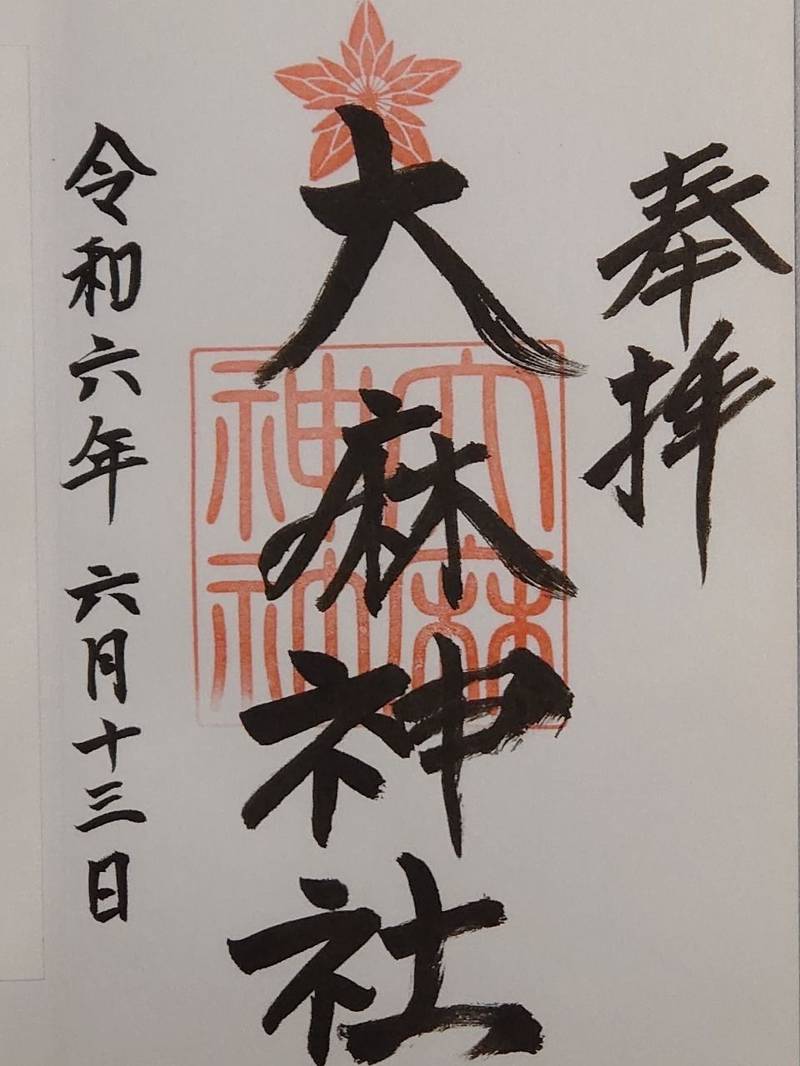 奉拝
大麻神社
令和六年 六月十三日
大麻
神社